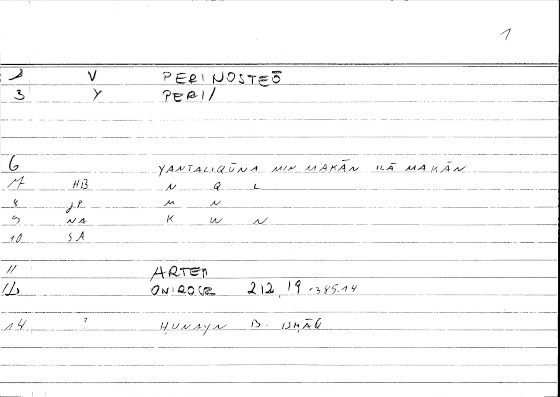 1
2 V PERINOSTEŌ
3 Y PERI/
6 YANTALIQŪNA MIN MAKĀN ILĀ MAKĀN
7 HB N Q L
8 JP M N
9 NA K W N
10 SA
11 ARTEM
ONIROCR 212,19 -385.14
14 ? ḤUNAYN B. ISḤĀQ